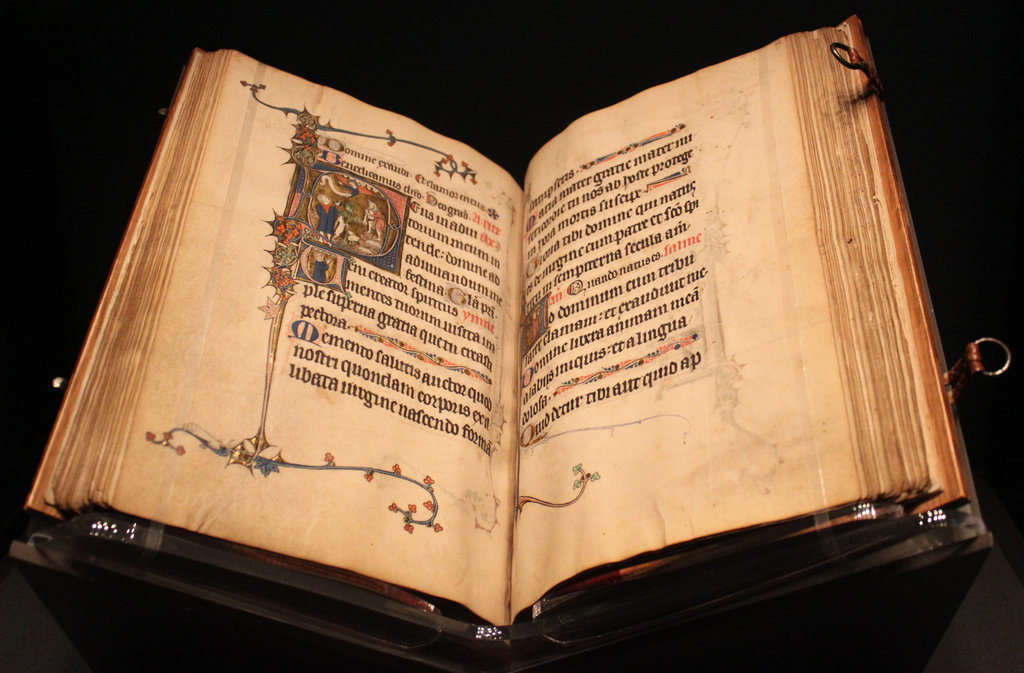 Domine exaudi. Et clamor meus
Benedicamus dno. Deo gras.
Deus in adiu A tier
torium meum in ce.
tende: domine ad
adiuuandum me
festina. Gla pri.
Veni creator spiritus ympne
mentes tuorum uisita im
ple superna gratia que tu creasti
pectora.
Memento salutis auctor quod
nostri quondam corporis ex il
libata uirgine nascendo formā
sumpseris.
Maria mater gratie mater mi
sericordie tu nos ab hoste protege
in hora mortis suscipe
Gloria tibi domine qui natus
es de uirgine cum patre et sco spi
ritu in sempiterna secula am
añ Quando natus es. salme
Ad dominum cum tribu
larer clamaui: et exaudiuit me.
Domine libera animam meā
a labiis iniquis: et a lingua
dolosa.
Quid detur tibi aut quid ap